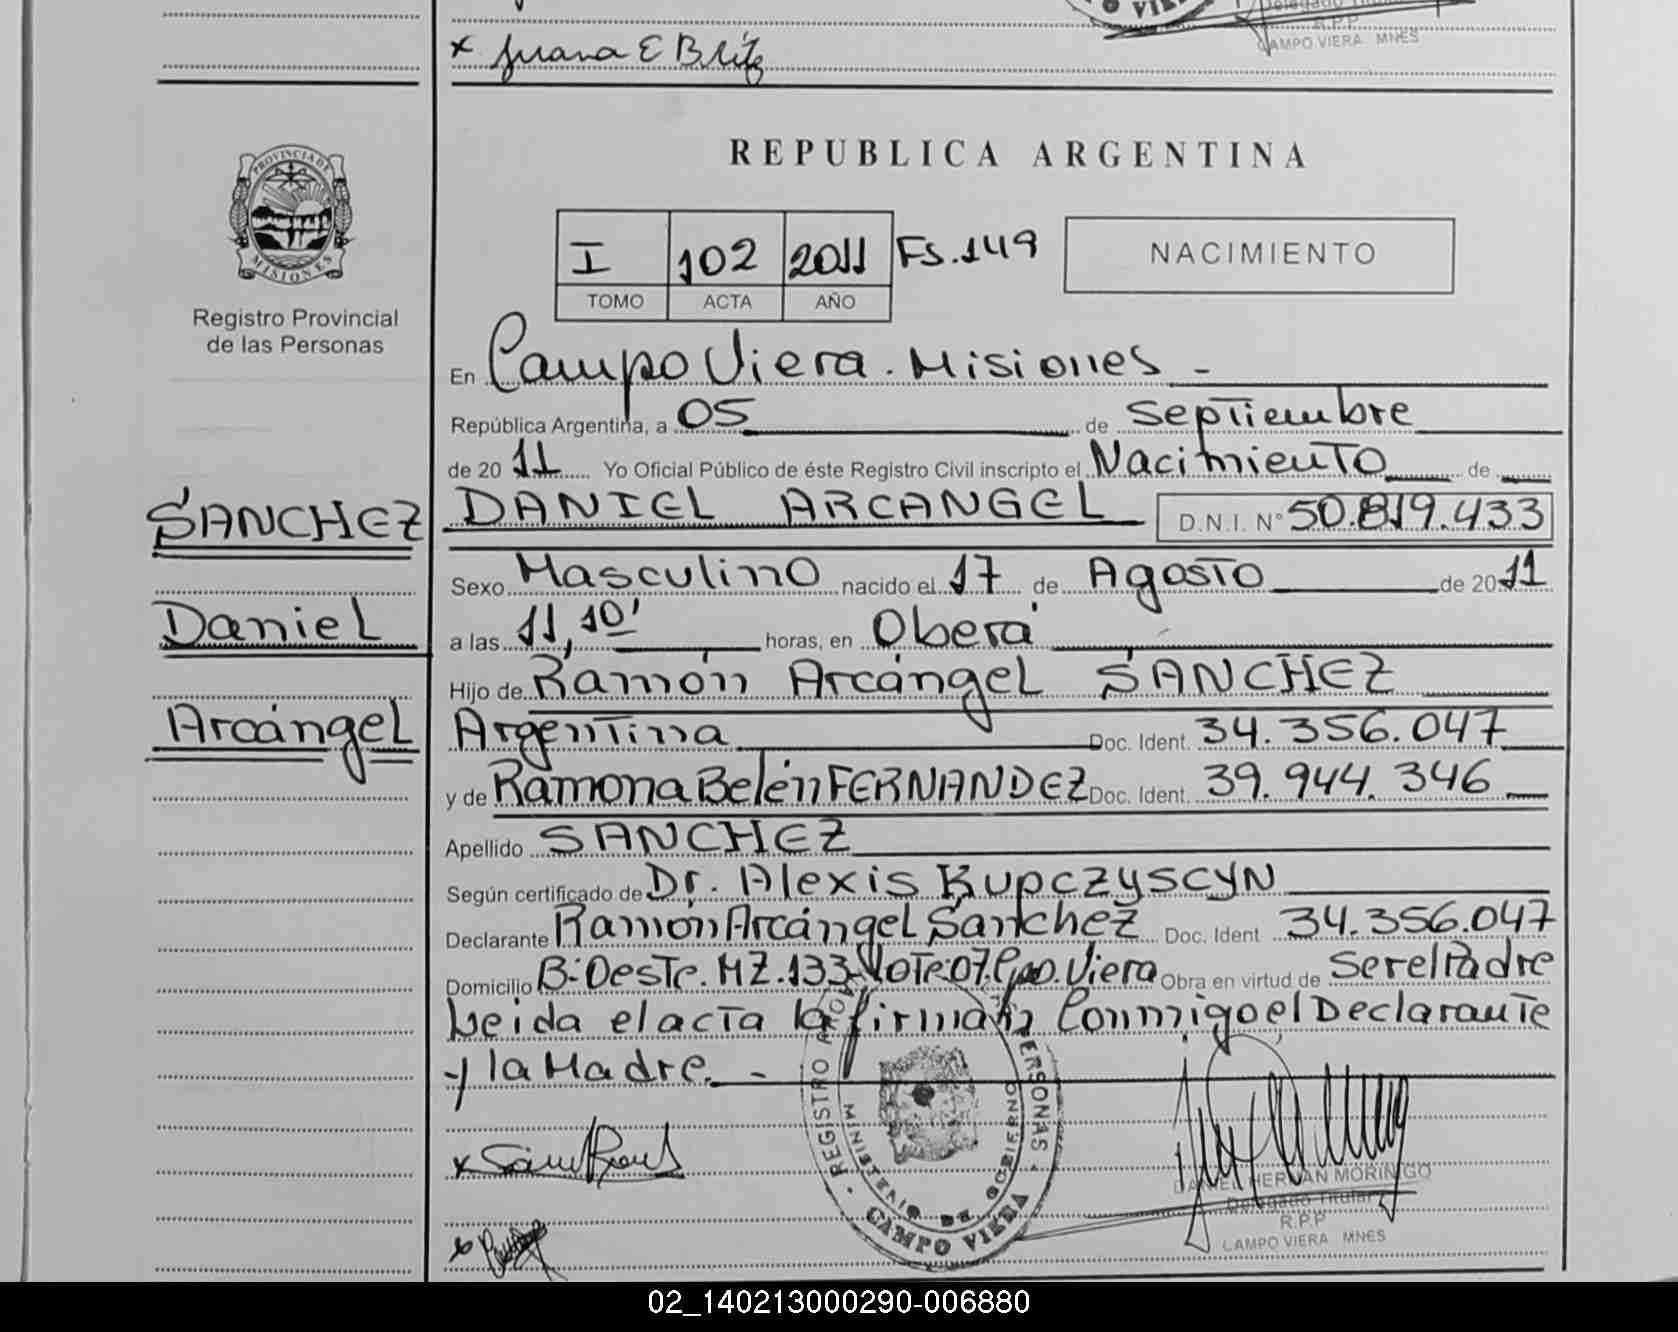 x Juana E Britz
Delegado Titular
R.P.P
CAMPO VIERA MNES
PROVINCIA DE
MISIONES
Registro Provincial
de las Personas
REPUBLICA ARGENTINA
I 102 2011 Fs.149
TOMO ACTA AÑO
NACIMIENTO
En Campo Viera. Misiones -
República Argentina, a 05 de Septiembre
de 20 11 Yo Oficial Público de éste Registro Civil inscripto el Nacimiento de
SANCHEZ
DANIEL ARCANGEL D.N.I. N° 50.819.433
Sexo Masculino nacido el 17 de Agosto de 20 11
Daniel
a las 11,10' horas, en Oberá
Hijo de Ramón Arcángel SANCHEZ
Arcángel
Argentina Doc. Ident. 34.356.047
y de Ramona Belén FERNANDEZ Doc. Ident. 39.944.346
Apellido SANCHEZ
Según certificado de Dr. Alexis KUPCZYSCYN
Declarante Ramón Arcángel Sanchez Doc. Ident 34.356.047
Domicilio B: Oeste. MZ.133. Lote:07. Cpo. Viera Obra en virtud de Ser el Padre
Leida el acta la firman Conmigo el Declarante
y la Madre. -
REGISTRO PERSONAS
MINISTERIO DE GOBIERNO
CAMPO VIERA
DANIEL HERNAN MORINIGO
Delegado Titular
R.P.P
CAMPO VIERA MNES
02_140213000290-006880